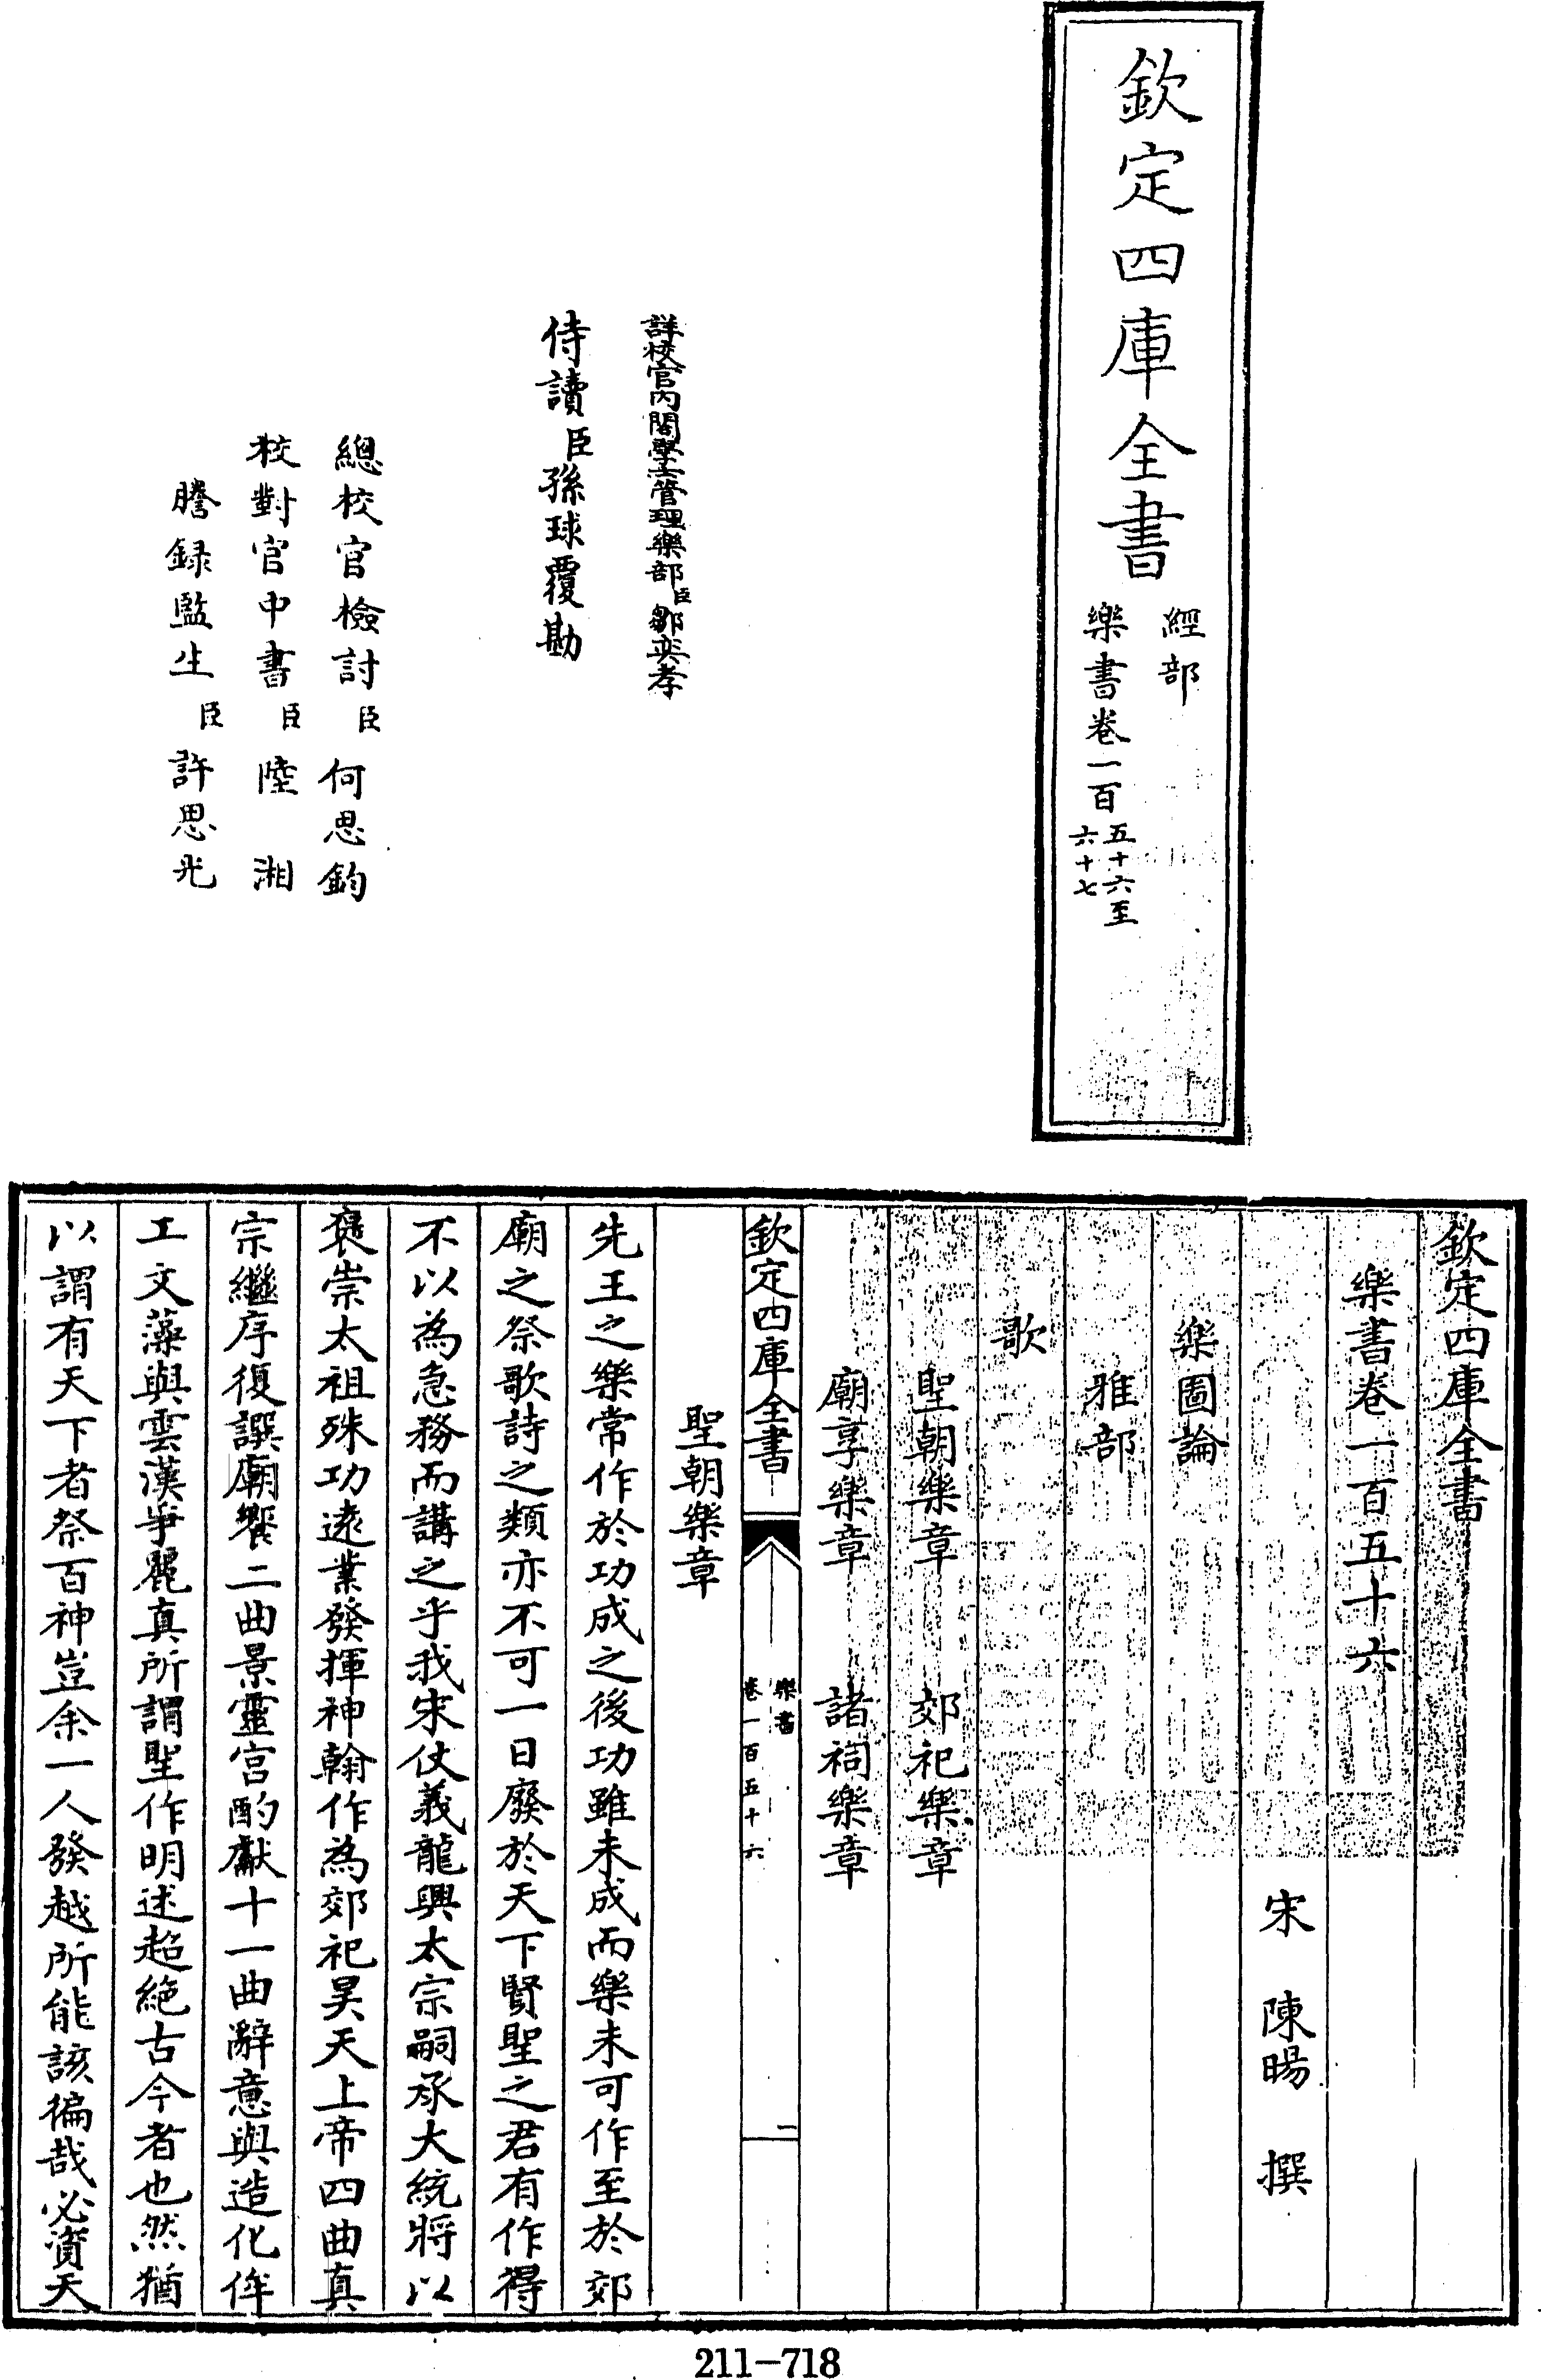 欽定四庫全書
經部
樂書卷一百
五十六至
六十七
詳校官內閣學士管理樂部臣鄒奕孝
侍讀臣孫球覆勘
總校官檢討臣何思鈞
校對官中書臣陸湘
謄録監生臣許思光
欽定四庫全書
樂書卷一百五十六
宋 陳暘 撰
樂圖論
雅部
歌
聖朝樂章 郊祀樂章
廟享樂章 諸祠樂章
欽定四庫全書
樂書
卷一百五十六
一
聖朝樂章
先王之樂常作於功成之後功雖未成而樂未可作至於郊
廟之祭歌詩之類亦不可一日廢於天下賢聖之君有作得
不以為急務而講之乎我宋仗義龍興太宗嗣承大統將以
褒崇太祖殊功遠業發揮神翰作為郊祀昊天上帝四曲真
宗繼序復譔廟饗二曲景靈宮酌獻十一曲辭意與造化侔
工文藻與雲漢爭麗真所謂聖作明述超絶古今者也然猶
以謂有天下者祭百神豈余一人發越所能該徧哉必資天
211-718